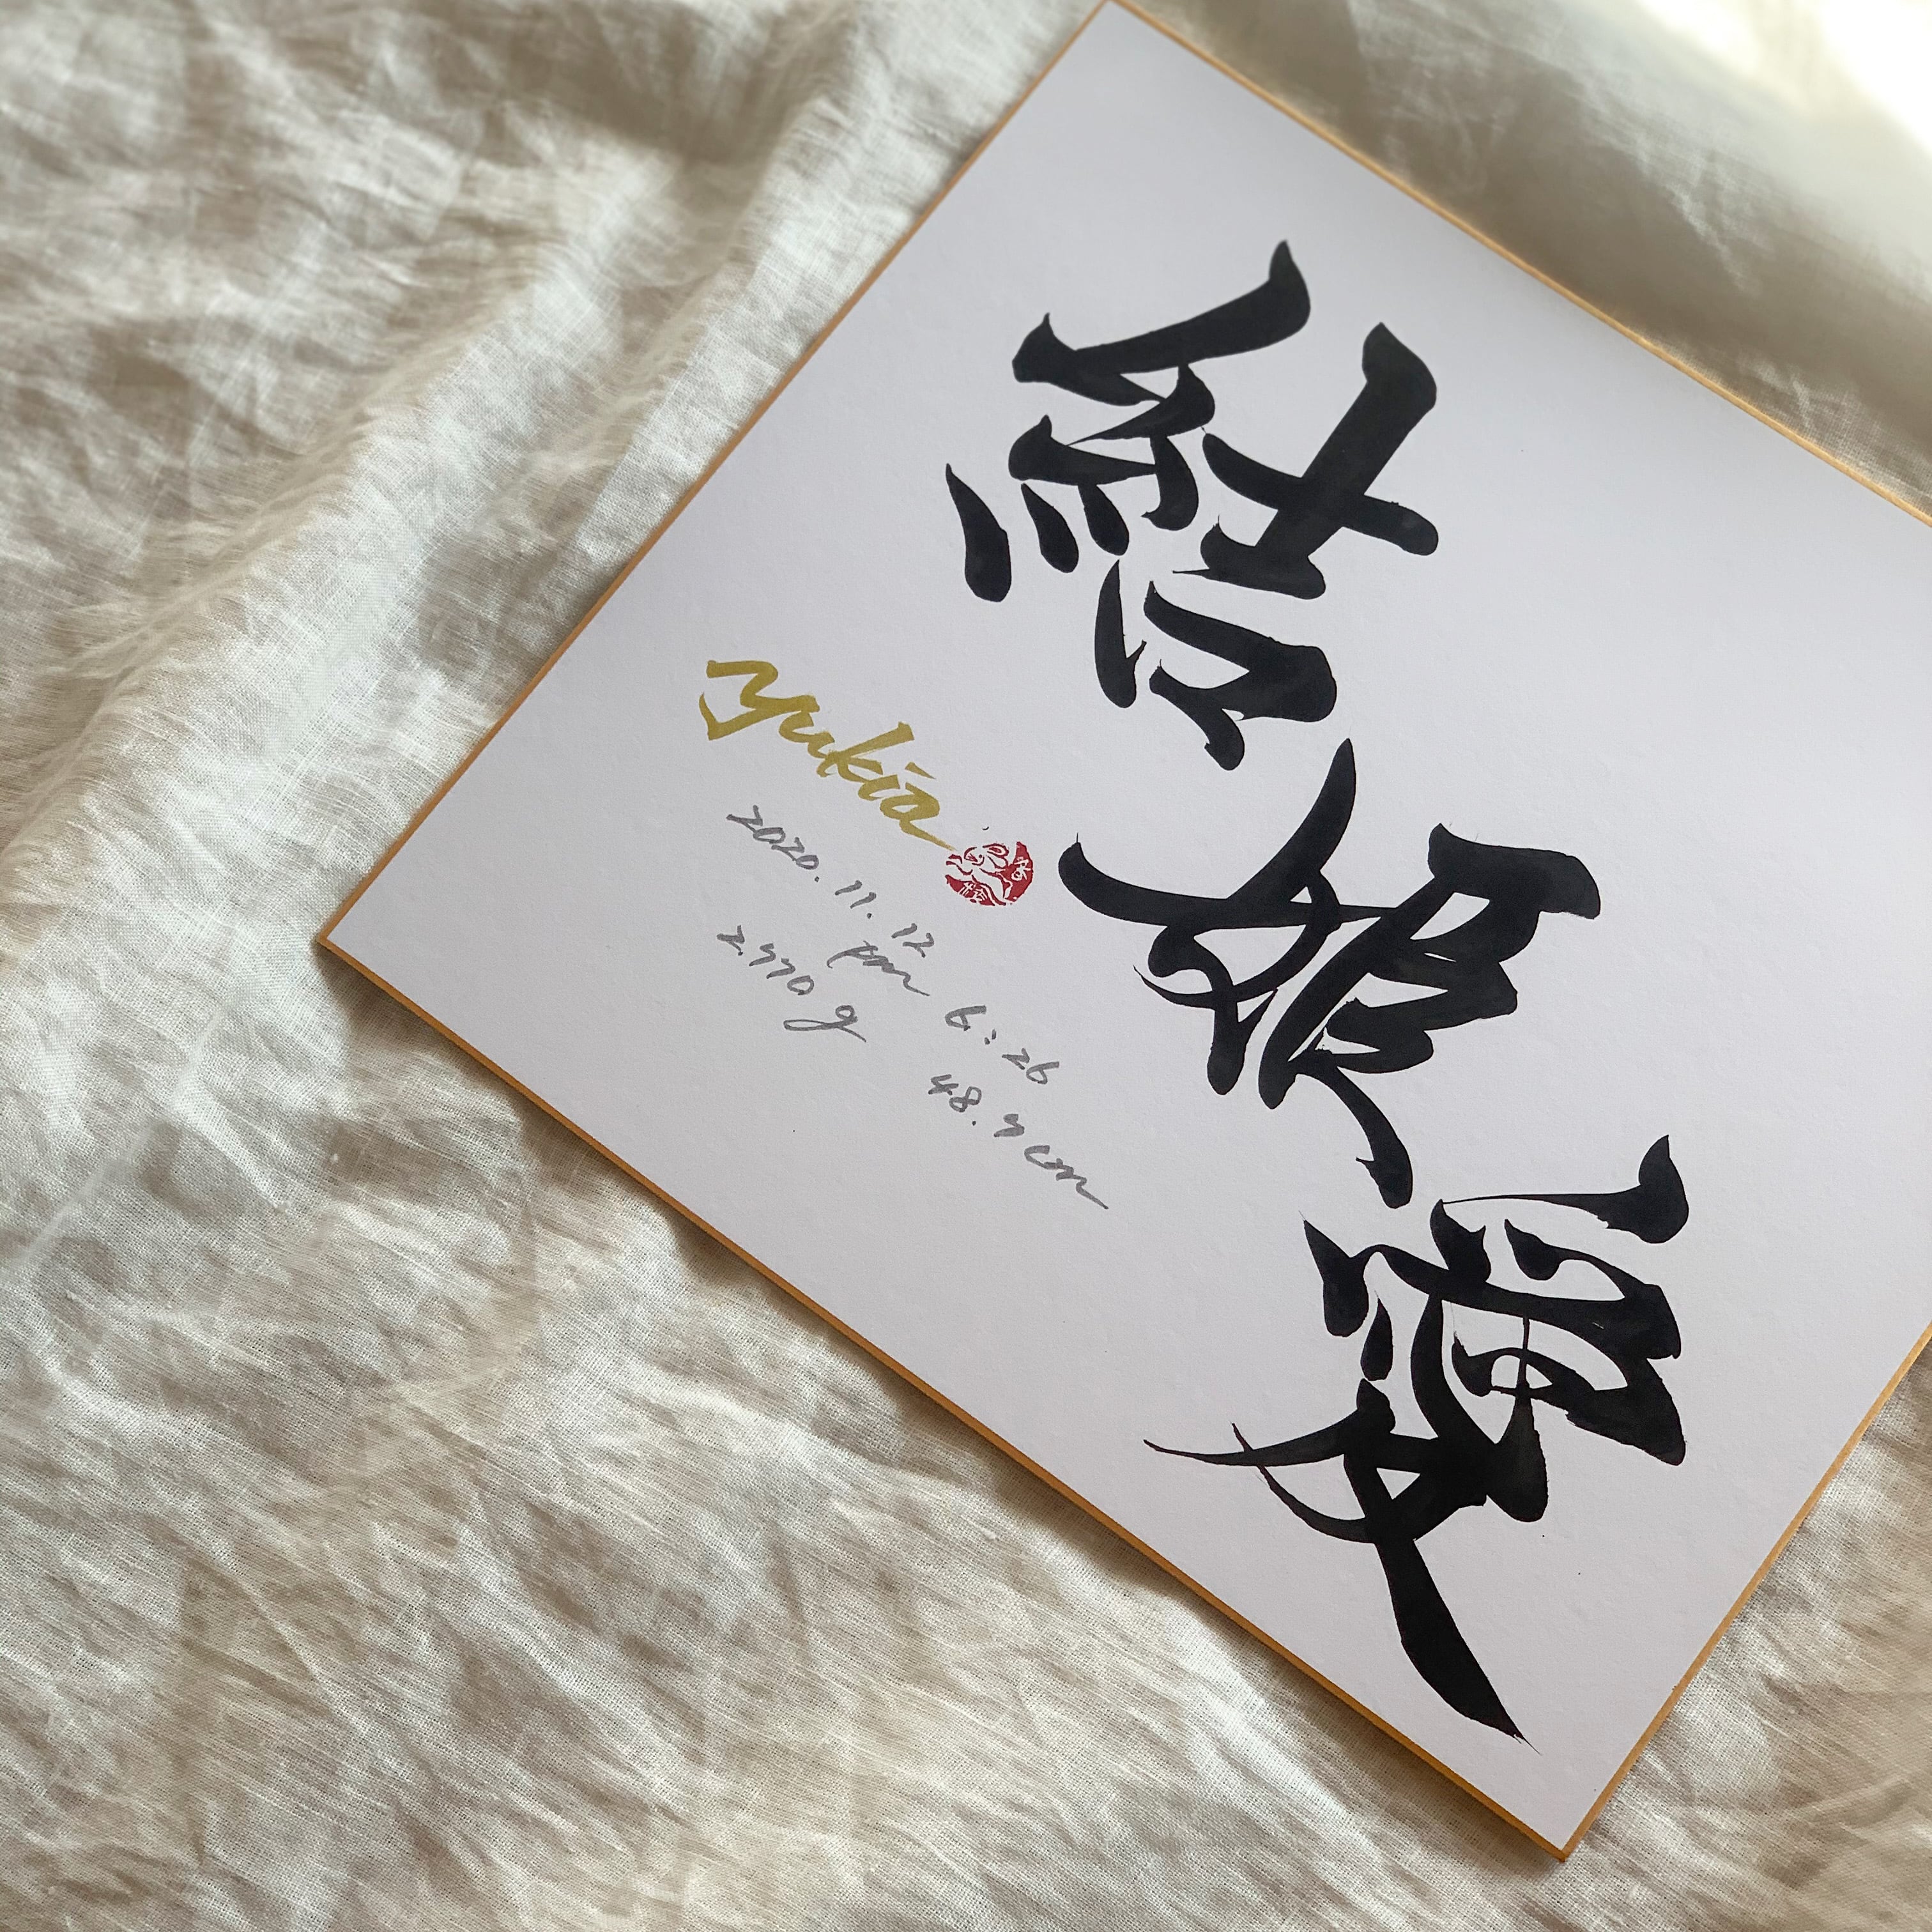 結姫愛
yukia
2020.11.12
pm 6:26
2.770g 48.7cm